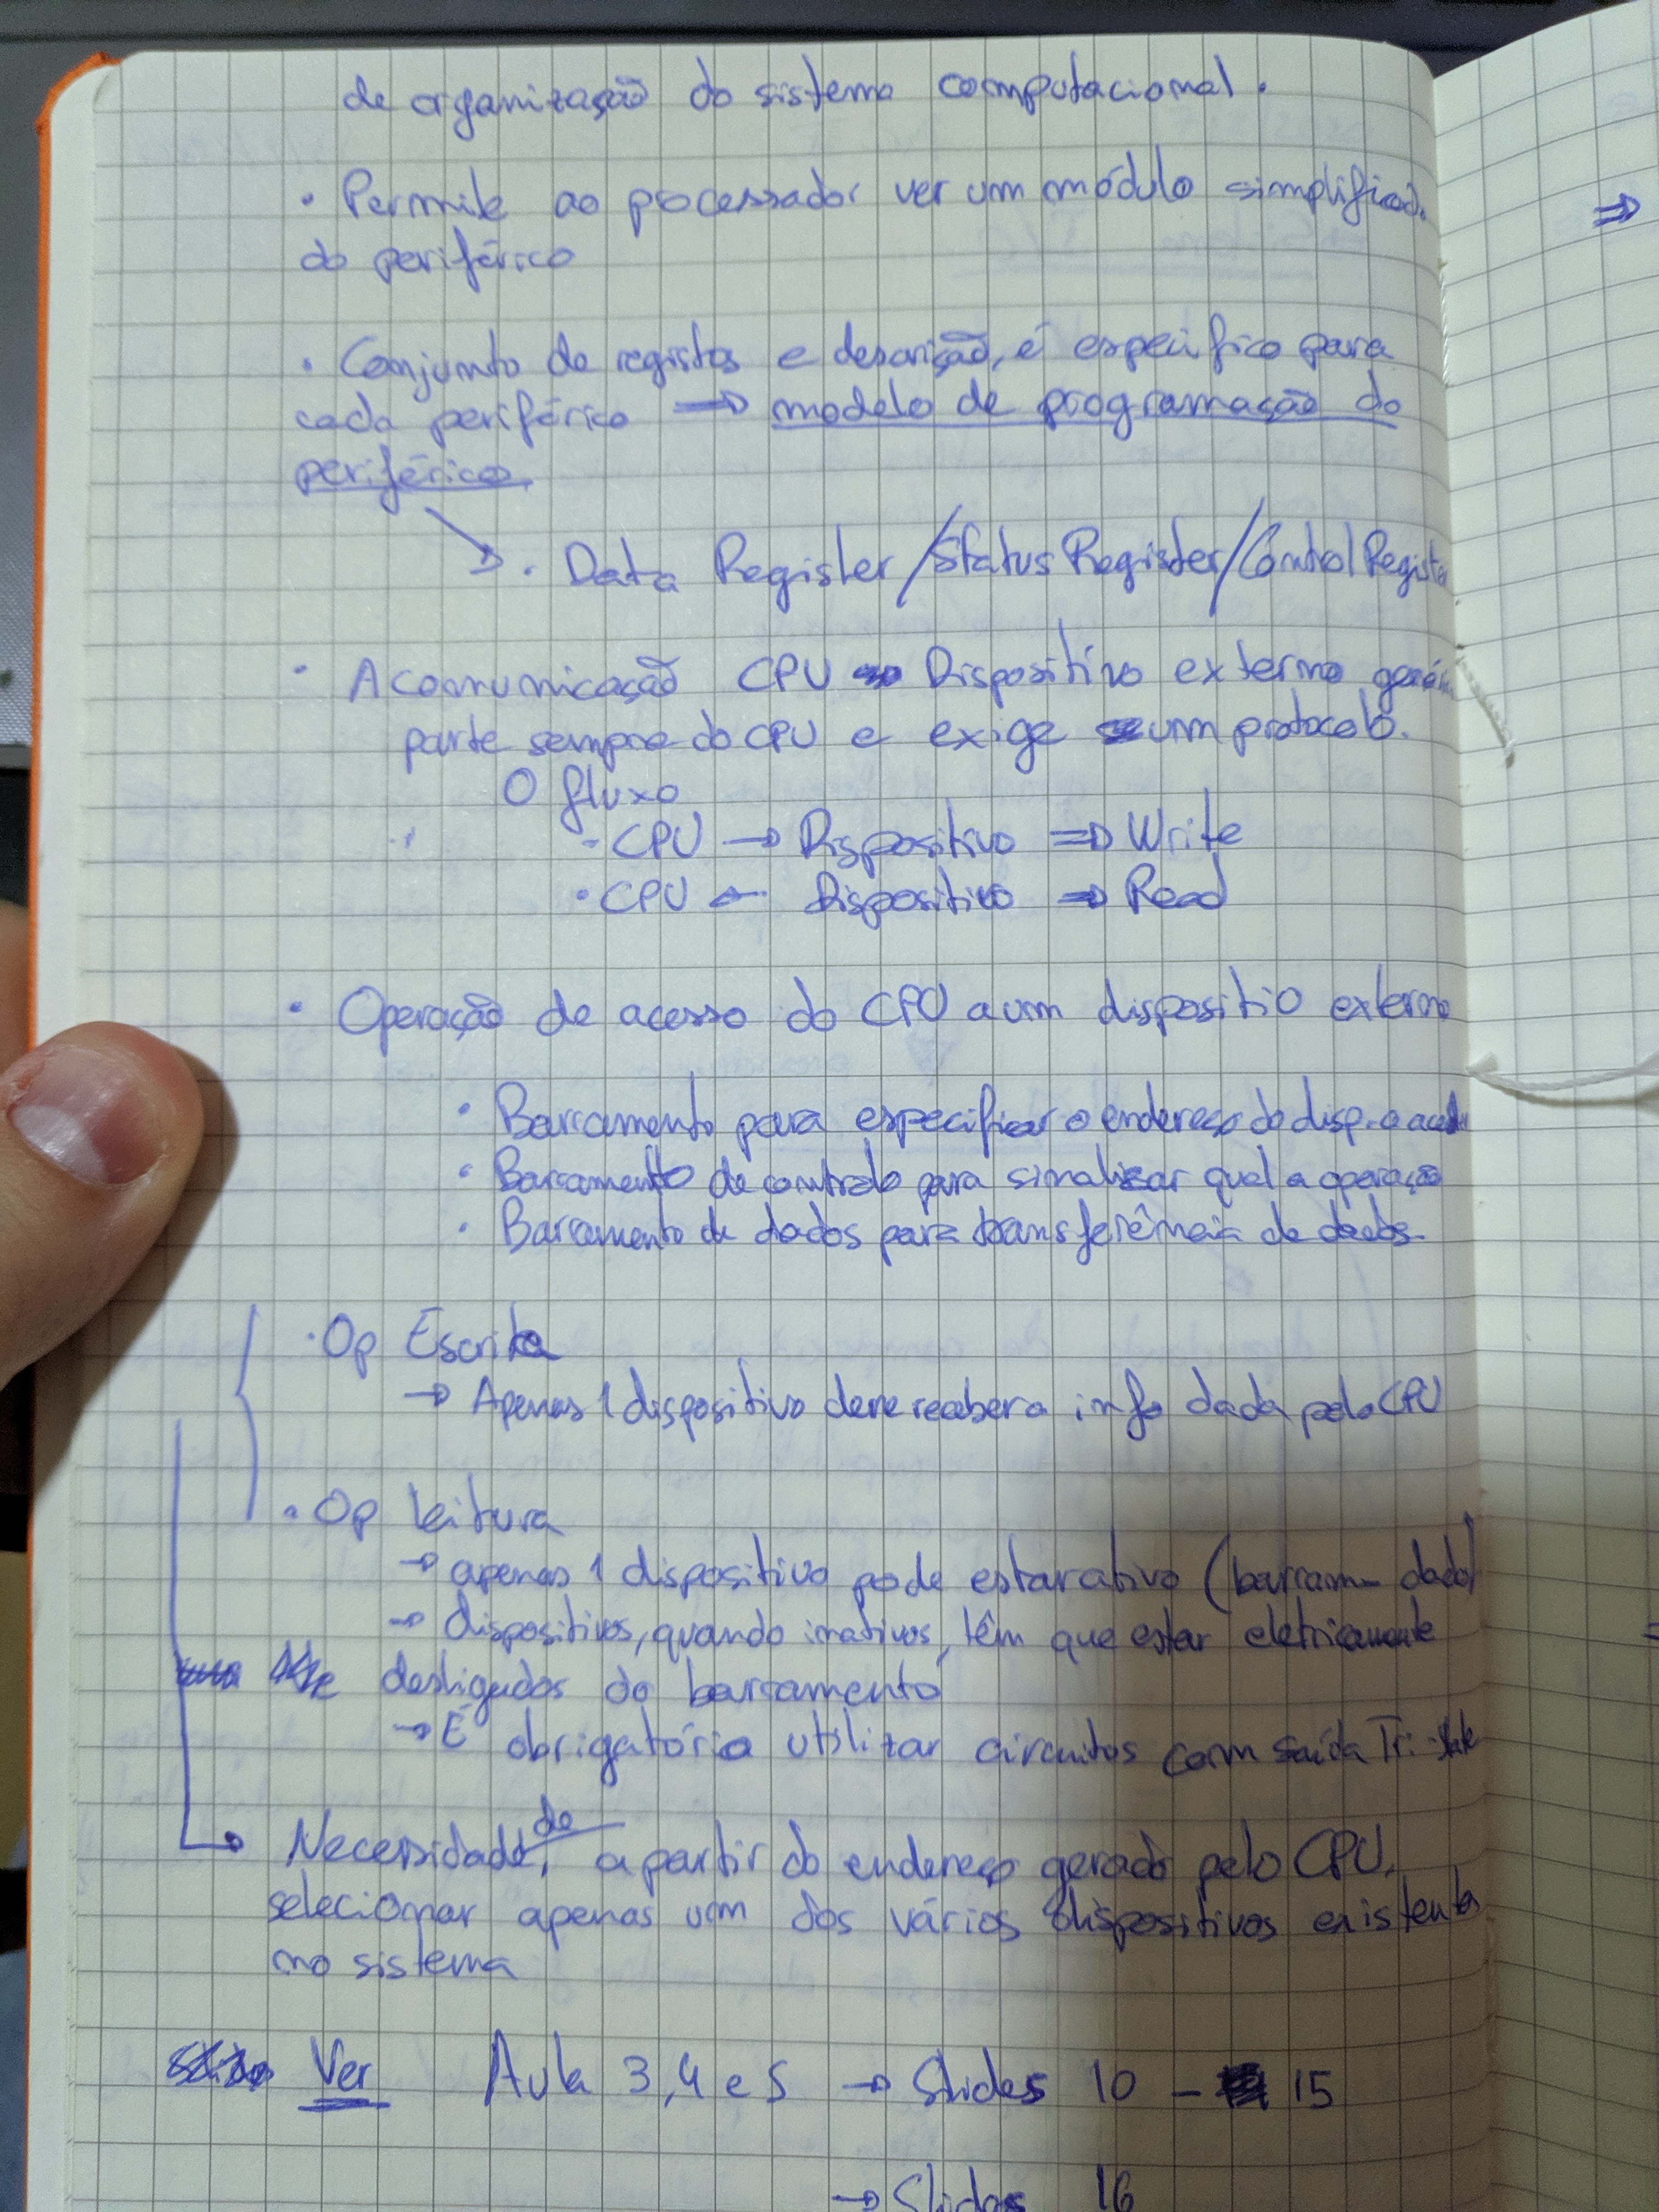 de organização do sistema computacional.
· Permite ao processador ver um módulo simplificado
do periférico
· Conjunto de registos e descrição, é especifico para
cada periférico => modelo de programação do
periférico.
→ · Data Register / Status Register / Control Register
· A comunicação CPU Dispositivo externo
parte sempre do CPU e exige um protocolo.
O fluxo
- CPU → Dispositivo => Write
· CPU ← Dispositivo => Read
· Operação de acesso do CPU a um dispositio externo
· Barramento para especificar o endereço do disp. a
· Barramento de controlo para sinalizar qual a operação
· Barramento de dados para transferência de dados.
· Op Escrita
→ Apenas 1 dispositivo deve receber a info dada pelo CPU
· Op leitura
→ apenas 1 dispositivo pode estar ativo (barram- dado)
→ dispositivos, quando inativos, têm que estar eletricamente
desligados do barramento
→ É obrigatório utilizar circuitos com saída Tri-state
→ Necessidade de, a partir do endereço gerado pelo CPU,
selecionar apenas um dos vários dispositivos existentes
no sistema
Ver Aula 3,4 e 5 → Slides 10 - 15
→ Slides 16